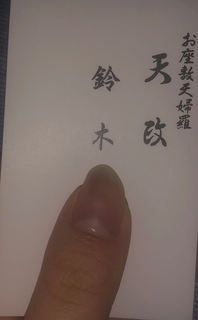 お座敷天婦羅
天政
鈴木